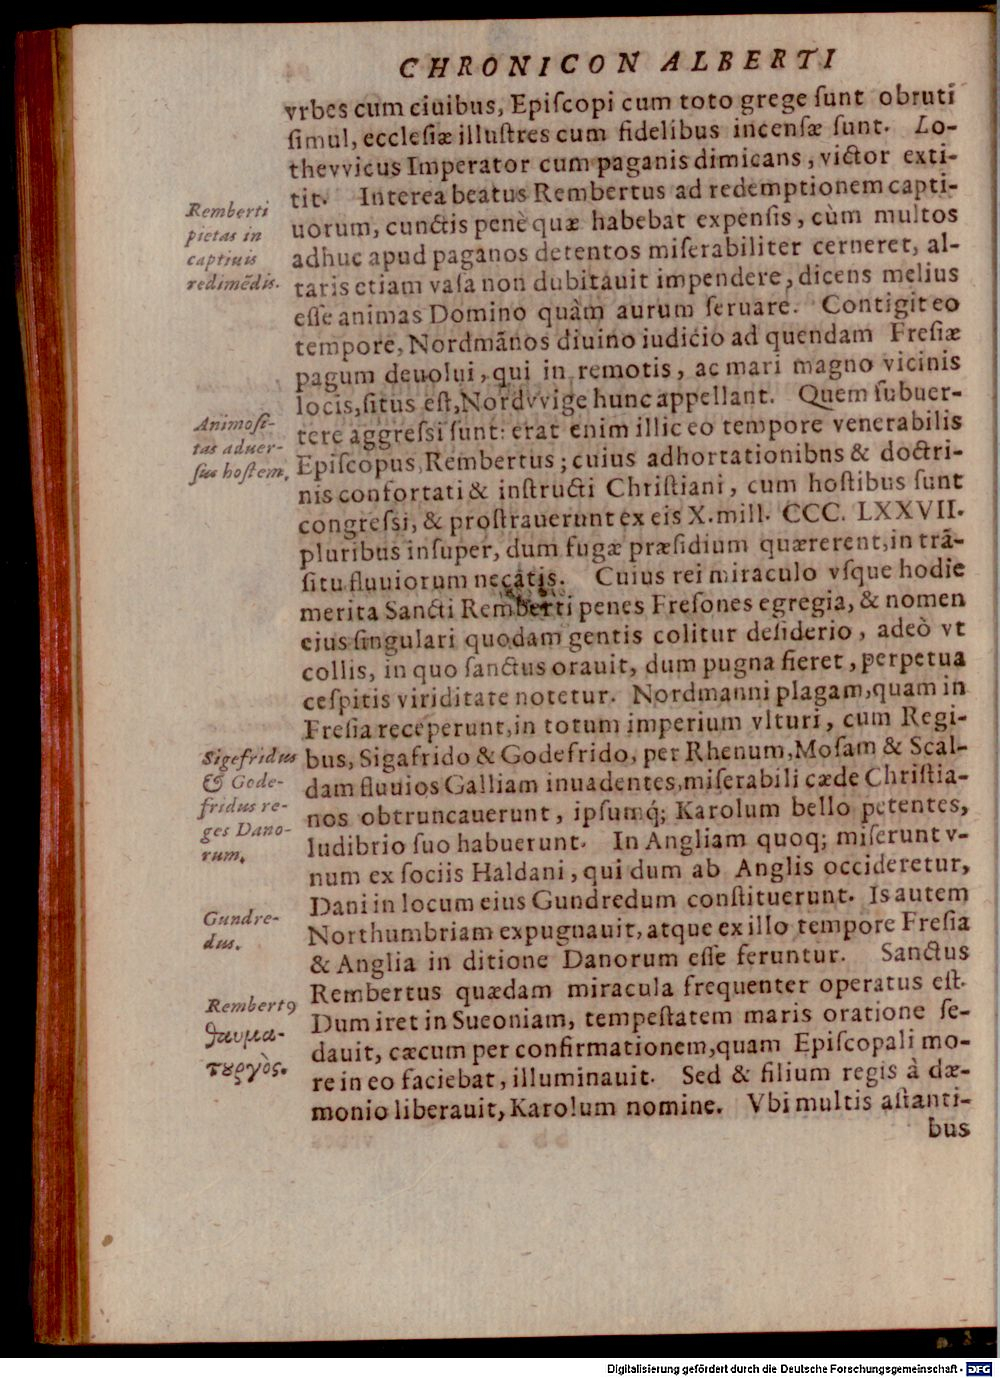 CHRONICON ALBERTI
vrbes cum ciuibus, Epiſcopi cum toto grege ſunt obruti
ſimul, eccleſiæ illuſtres cum fidelibus incenſæ ſunt. Lo-
thevvicus Imperator cum paganis dimicans, victor exti-
tit. Interea beatus Rembertus ad redemptionem capti-
uorum, cunctis penè quæ habebat expenſis, cùm multos
adhuc apud paganos detentos miſerabiliter cerneret, al-
taris etiam vaſa non dubitauit impendere, dicens melius
eſſe animas Domino quàm aurum ſeruare. Contigit eo
tempore, Nordmãnos diuino iudicio ad quendam Freſiæ
pagum deuolui, qui in remotis, ac mari magno vicinis
locis, ſitus eſt, Nordvvige hunc appellant. Quem ſubuer-
tere aggreſsi ſunt: erat enim illic eo tempore venerabilis
Epiſcopus, Rembertus; cuius adhortationibns & doctri-
nis confortati & inſtructi Chriſtiani, cum hoſtibus ſunt
congreſsi, & proſtrauerunt ex eis X. mill. CCC. LXXVII.
pluribus inſuper, dum fugæ præſidium quærerent, in trã-
ſitu fluuiorum necatis. Cuius rei miraculo vſque hodie
merita Sancti Remberti penes Freſones egregia, & nomen
eius ſingulari quodam gentis colitur deſiderio, adeò vt
collis, in quo ſanctus orauit, dum pugna fieret, perpetua
ceſpitis viriditate notetur. Nordmanni plagam, quam in
Freſia receperunt, in totum imperium vlturi, cum Regi-
bus, Sigafrido & Godefrido, per Rhenum, Moſam & Scal-
dam fluuios Galliam inuadentes, miſerabili cæde Chriſtia-
nos obtruncauerunt, ipſumq́; Karolum bello petentes,
ludibrio ſuo habuerunt. In Angliam quoq; miſerunt v-
num ex ſociis Haldani, qui dum ab Anglis occideretur,
Dani in locum eius Gundredum conſtituerunt. Is autem
Northumbriam expugnauit, atque ex illo tempore Freſia
& Anglia in ditione Danorum eſſe feruntur. Sanctus
Rembertus quædam miracula frequenter operatus eſt.
Dum iret in Sueoniam, tempeſtatem maris oratione ſe-
dauit, cæcum per confirmationem, quam Epiſcopali mo-
re in eo faciebat, illuminauit. Sed & filium regis à dæ-
monio liberauit, Karolum nomine. Vbi multis aſtanti-
bus
Remberti
pietas in
captiuis
redimẽdis.
Animoſi-
tas aduer-
ſus hoſtem.
Sigefridus
& Gode-
fridus re-
ges Dano-
rum.
Gundre-
dus.
Rembertꝰ
θαυμα-
τουργὸς.
Digitalisierung gefördert durch die Deutsche Forschungsgemeinschaft - DFG